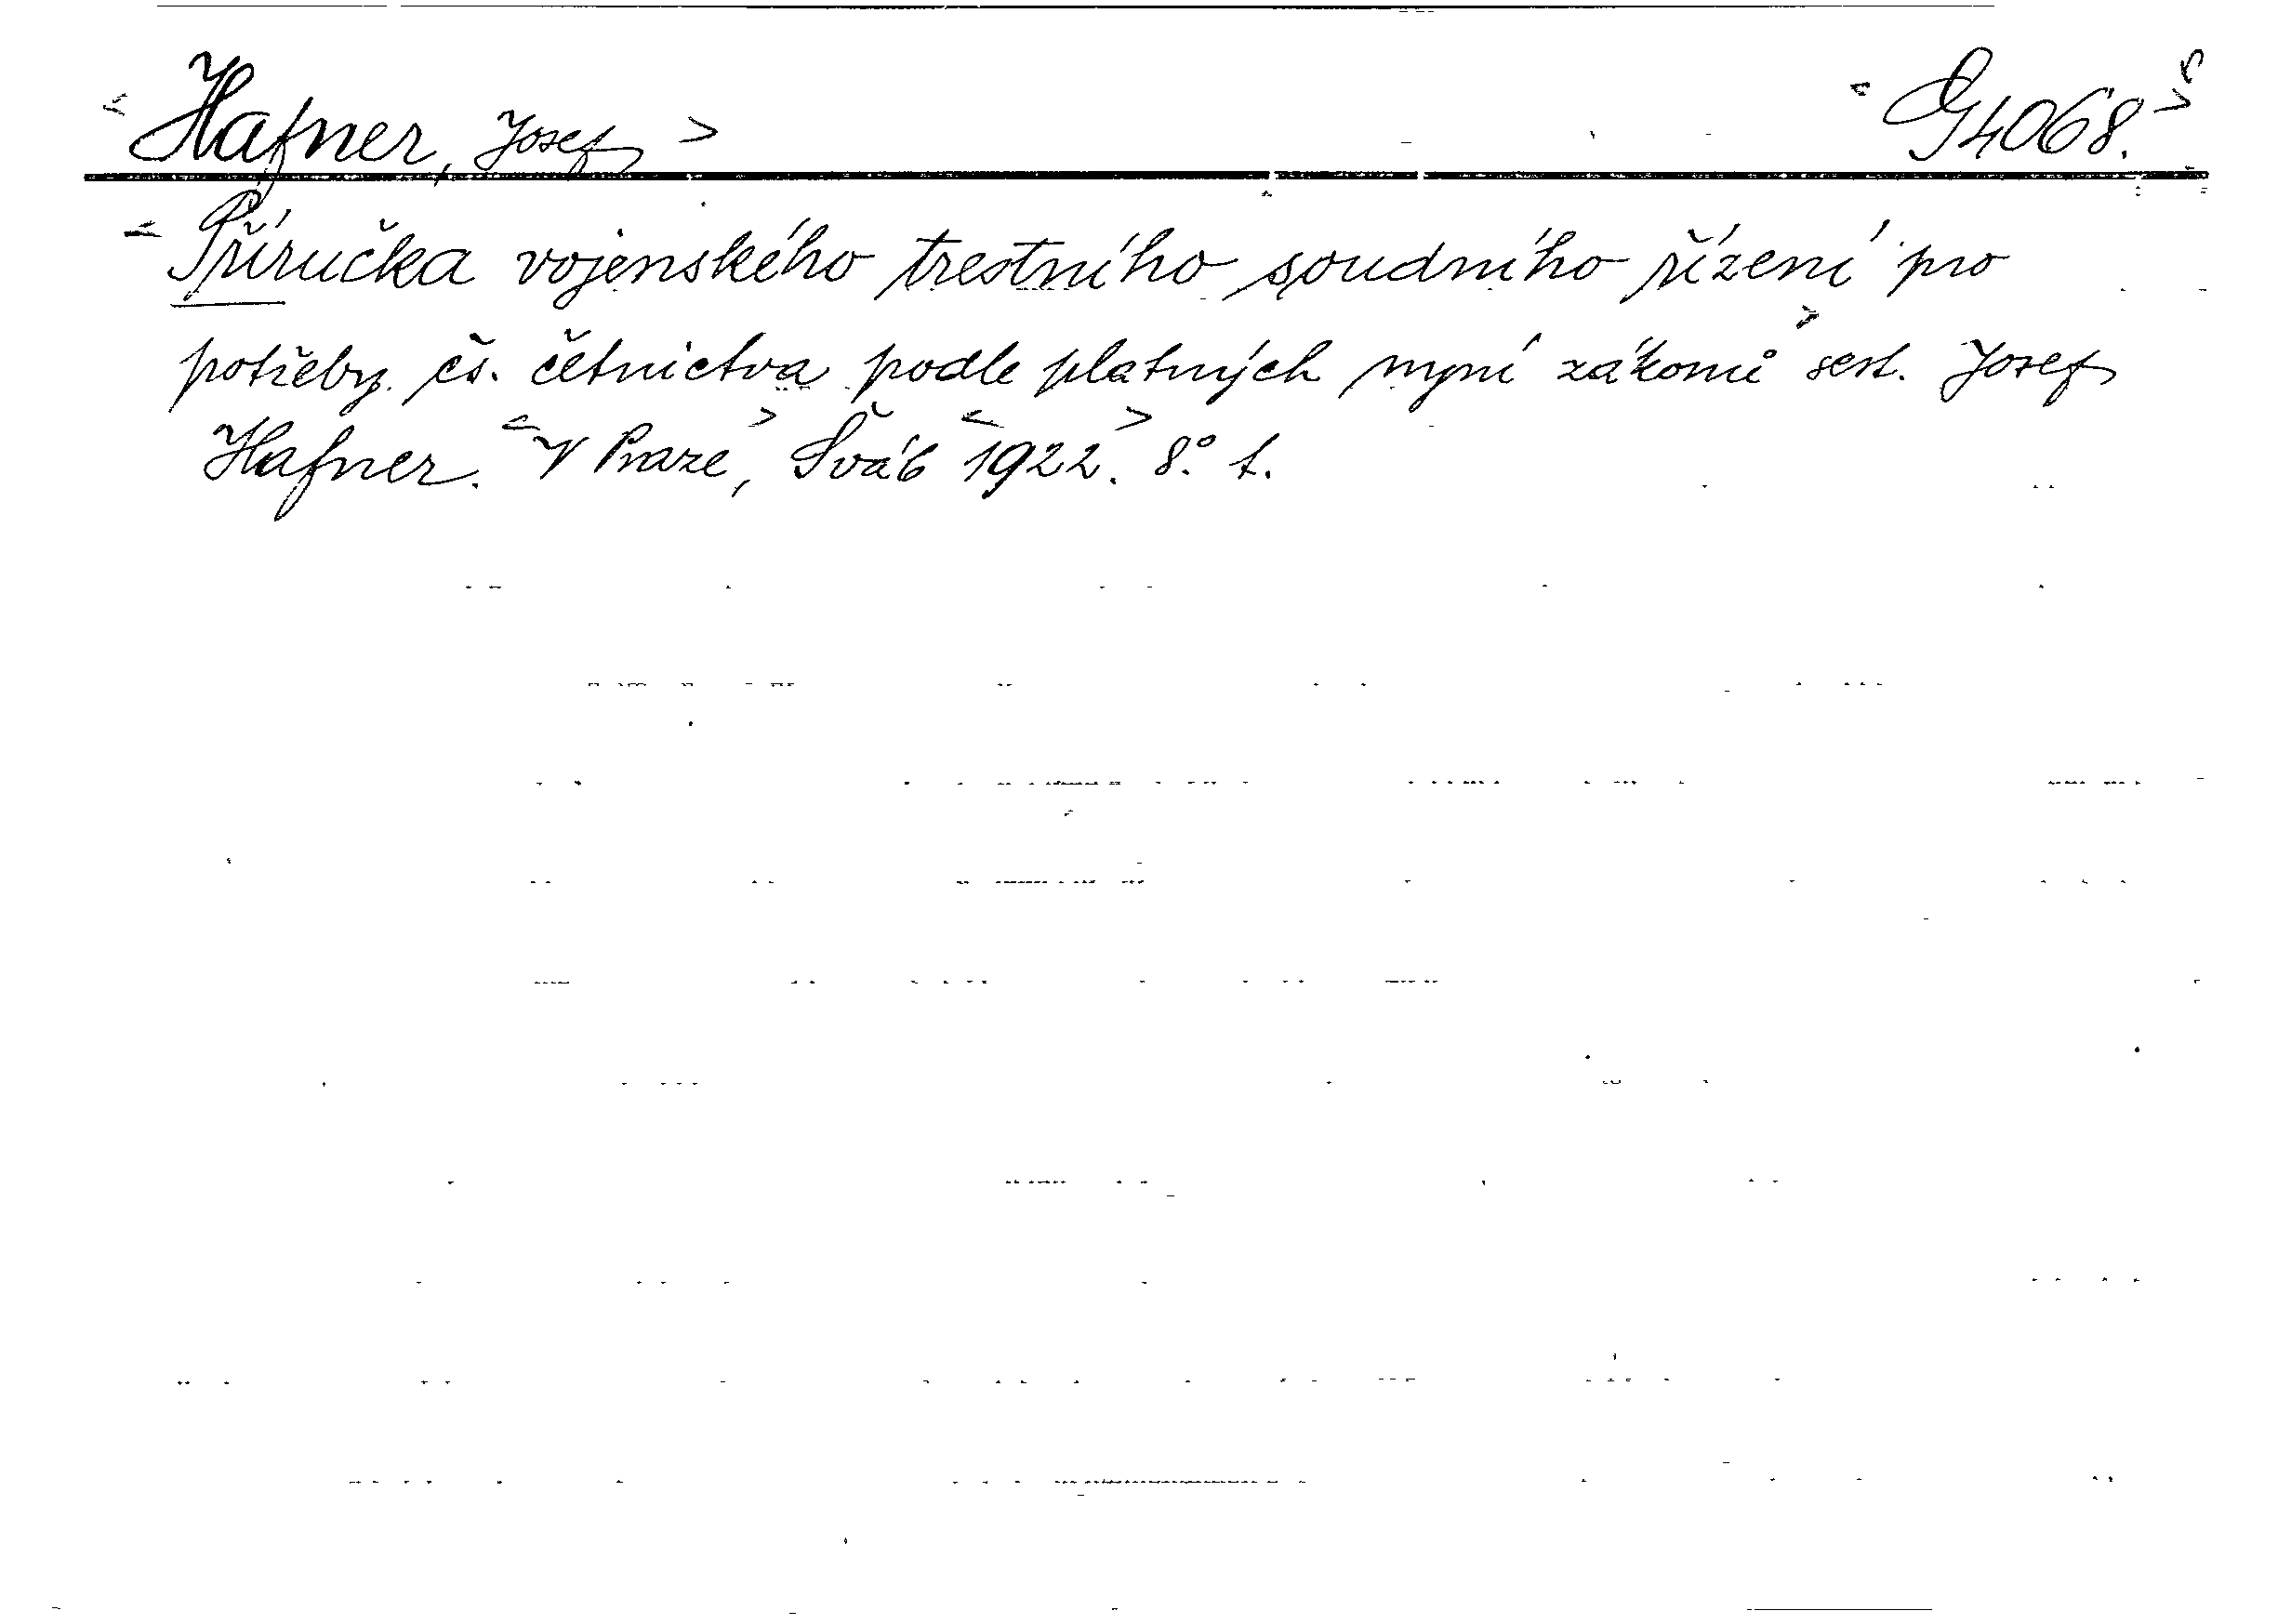 <Hafner, Josef> <G 4068.>
<Příručka vojenského trestního soudního řízení pro
potřeby čs. četnictva podle platných nyní zákonů> sest. Josef
Hafner. <V Praze>, Šváb <1922.> 8.° 1.